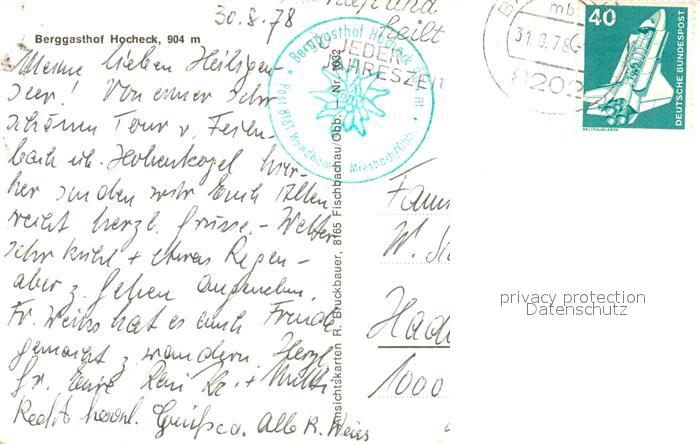 30.8.78
Berggasthof Hocheck, 904 m
Meine lieben Heiligen-
seer! Von einer sehr
schönen Tour v. Feilen-
bach üb. Hohenkogel hier-
her senden wir Euch Allen
recht herzl. Grüsse. - Wetter
sehr kühl + etwas Regen -
aber z. gehen angenehm.
Fr. Weiss hat es auch Freude
gemacht z. wandern. Herzl.
Gr. Eure + Mutti
Recht herzl. Grüsse a. Alle R. Weiss
heilt
ZU JEDER
JAHRESZEIT
Berggasthof Hocheck
Post 8161 Hundham Miesbach/Obb.
Ansichtskarten R. Bruckbauer, 8165 Fischbachau/Obb. - Nr. 1032
31.8.78
8202
40
DEUTSCHE BUNDESPOST
WELTRAUMLABOR
Fam
W.
Had
1000
privacy protection
Datenschutz